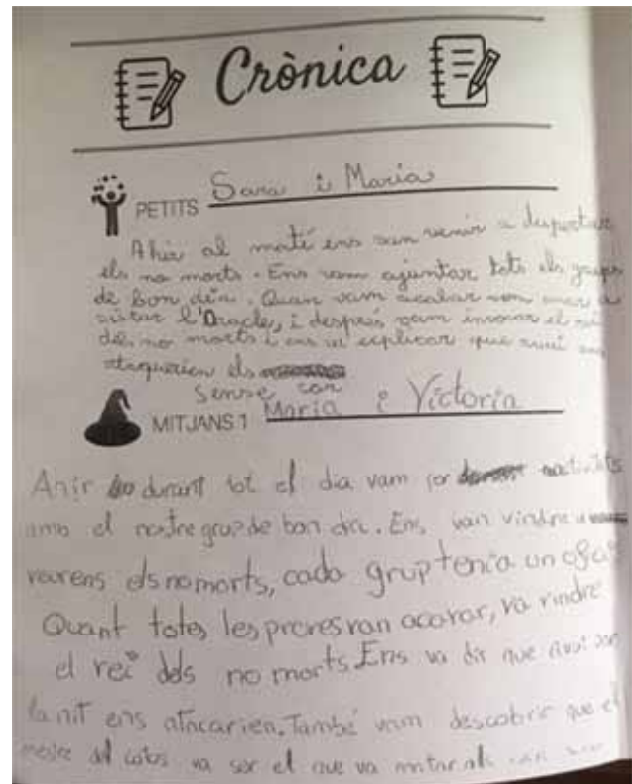 Crònica
PETITS Sara i Maria
Ahir al matí ens van venir a despertar
els no morts. Ens vam ajuntar tots els grups
de bon dia. Quan vam acabar vam anar a
l'Oracle, i després vam invocar el rei
dels no morts i ens va explicar que avui ens
atacarien els
sense cor
MITJANS 1 Maria i Victoria
Ahir durant tot el dia vam fer activitats
amb el nostre grup de bon dia. Ens van vindre a
veurens els no morts, cada grup tenia un ofici
Quant totes les proves van acavar, va vindre
el rei dels no morts. Ens va dir que avui
la nit ens atacarien. També vam descobrir que el
va ser el que va matar als